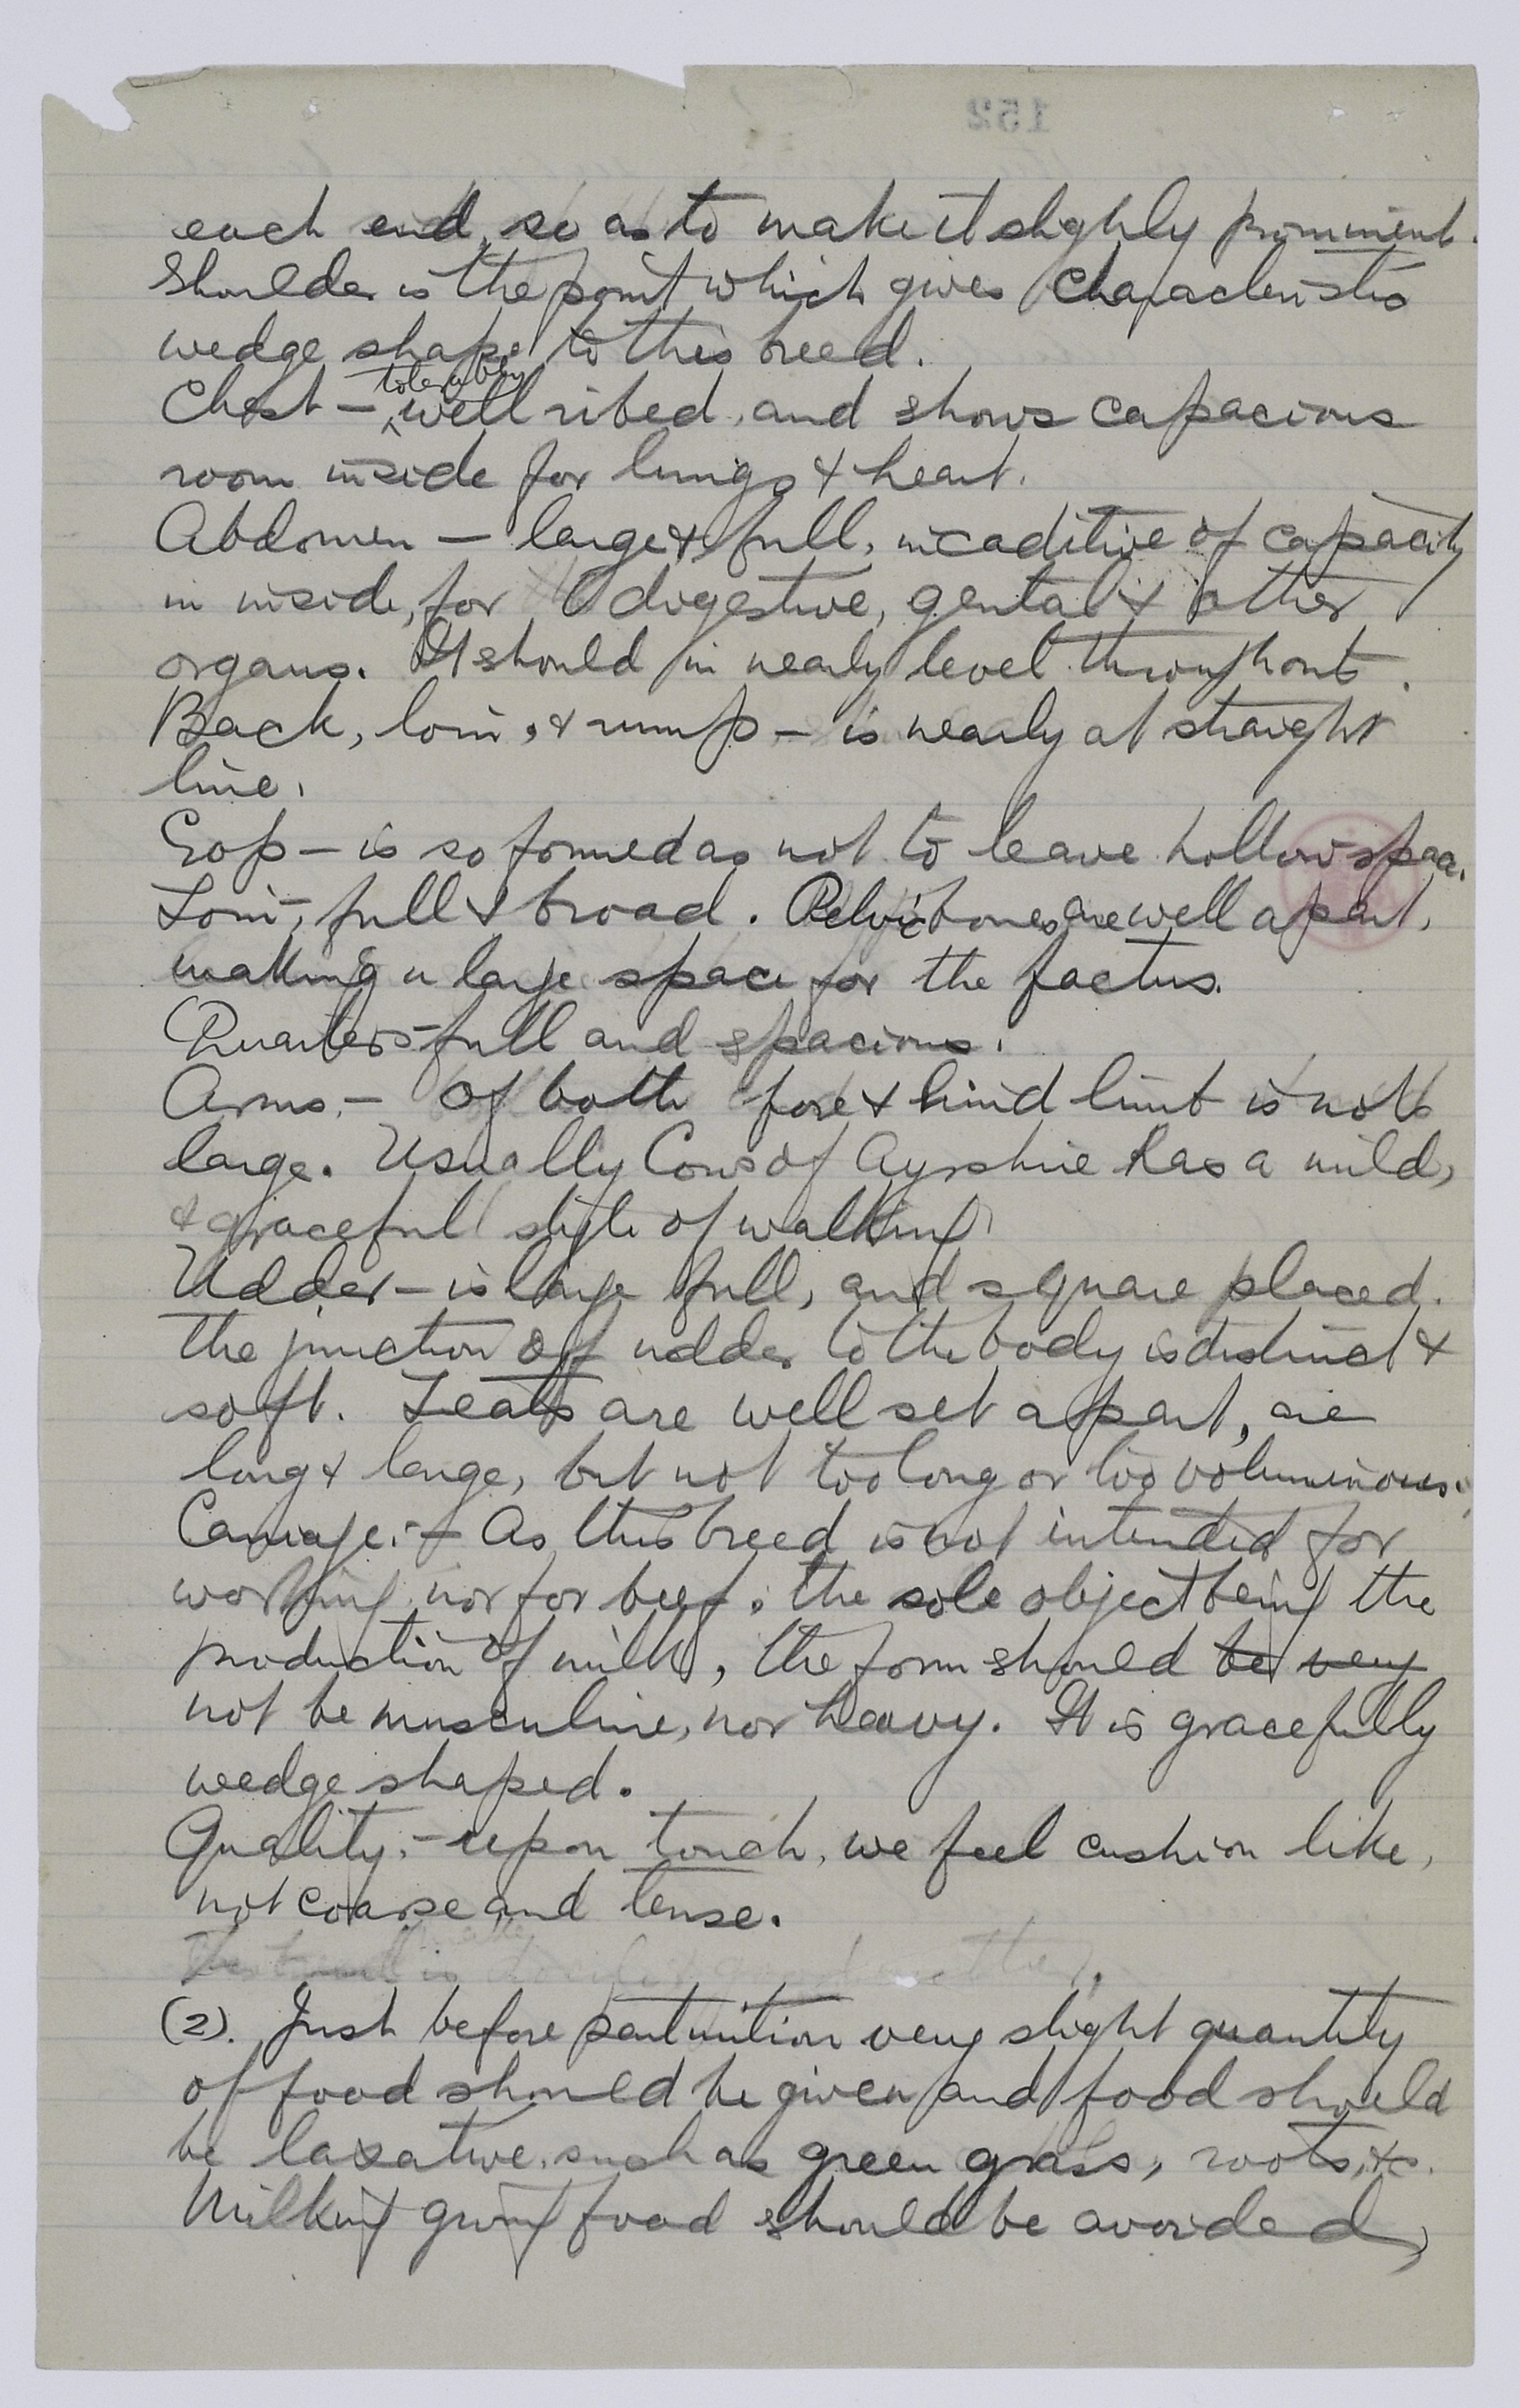 152
each end, so as to make it slighly prominent.
Shoulder is the point which gives characteristic
wedge shape to this breed.
Chest – tolerably well ribed, and shows capacious
room inside for lungs & heart.
Abdomen – large & full, incaditive of capacity
in inside, for digestive, gental & other
organs. It should in nearly level throughout.
Back, loin, & rump – is nearly at straight
line.
Crop – is so formed as not to leave hollow space.
Loin – full & broad. Pelvic bones are well apart,
making a large space for the foetus.
Quarters – full and spacious.
Arms. – Of both fore & hind limb is not
large. Usually Cows of Ayrshire has a mild,
& graceful style of walking.
Udder – is large full, and square placed.
The junction of udder to the body is distinct &
soft. Teats are well set apart, are
long & large, but not too long or too voluminous.
Carriage: – As this breed is not intended for
working, nor for beef, the sole object being the
production of milk, the form should be very
not be musculine, nor heavy. It is gracefully
wedge shaped.
Quality. – upon touch, we feel cushion like,
not coarse and tense.
(2). Just before parturition very slight quantity
of food should be given and food should
be laxative, such as green grass, roots, &c.
Milking giving food should be avoided,